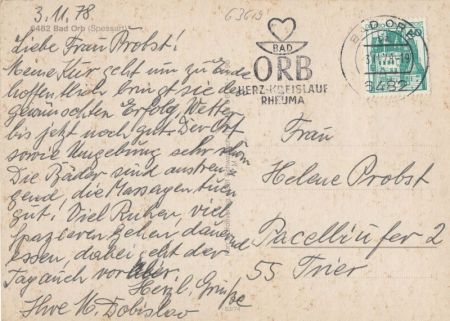 3.11.78.
63619
6482 Bad Orb (Spessart)
Liebe Frau Probst!
Meine Kur geht nun zu Ende
hoffentlich bringt sie den
gewünschten Erfolg, Wetter
bis jetzt noch gut. Der Ort
sowie Umgebung sehr schön
Die Bäder sind anstren-
gend, die Massagen tuen
gut. Viel Ruhen, viel
spazieren gehen dauernd
essen, dabei geht der
Tag auch vorüber.
Herzl. Grüße
Ihre M. Dobislav
BAD
ORB
HERZ-KREISLAUF
RHEUMA
BAD ORB
6482
Frau
Helene Probst
Pacelliufer 2
55 Trier